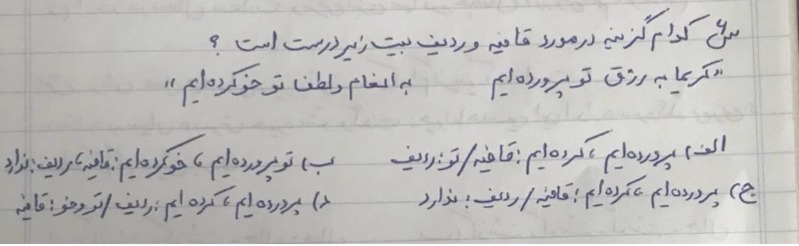 س۶ کدام گزینه درمورد قافیه و ردیف بیت زیر درست است ؟
«کریما به رزق تو پرورده ایم به انعام ولطف تو خو کرده ایم »
الف) پرورده ایم ، کرده ایم : قافیه / تو : ردیف ب) تو پرورده ایم ، خو کرده ایم : قافیه ، ردیف : ندارد
ج) پرورده ایم ، کرده ایم : قافیه / ردیف : ندارد د) پرورده ایم ، کرده ایم : ردیف / تو و خو : قافیه